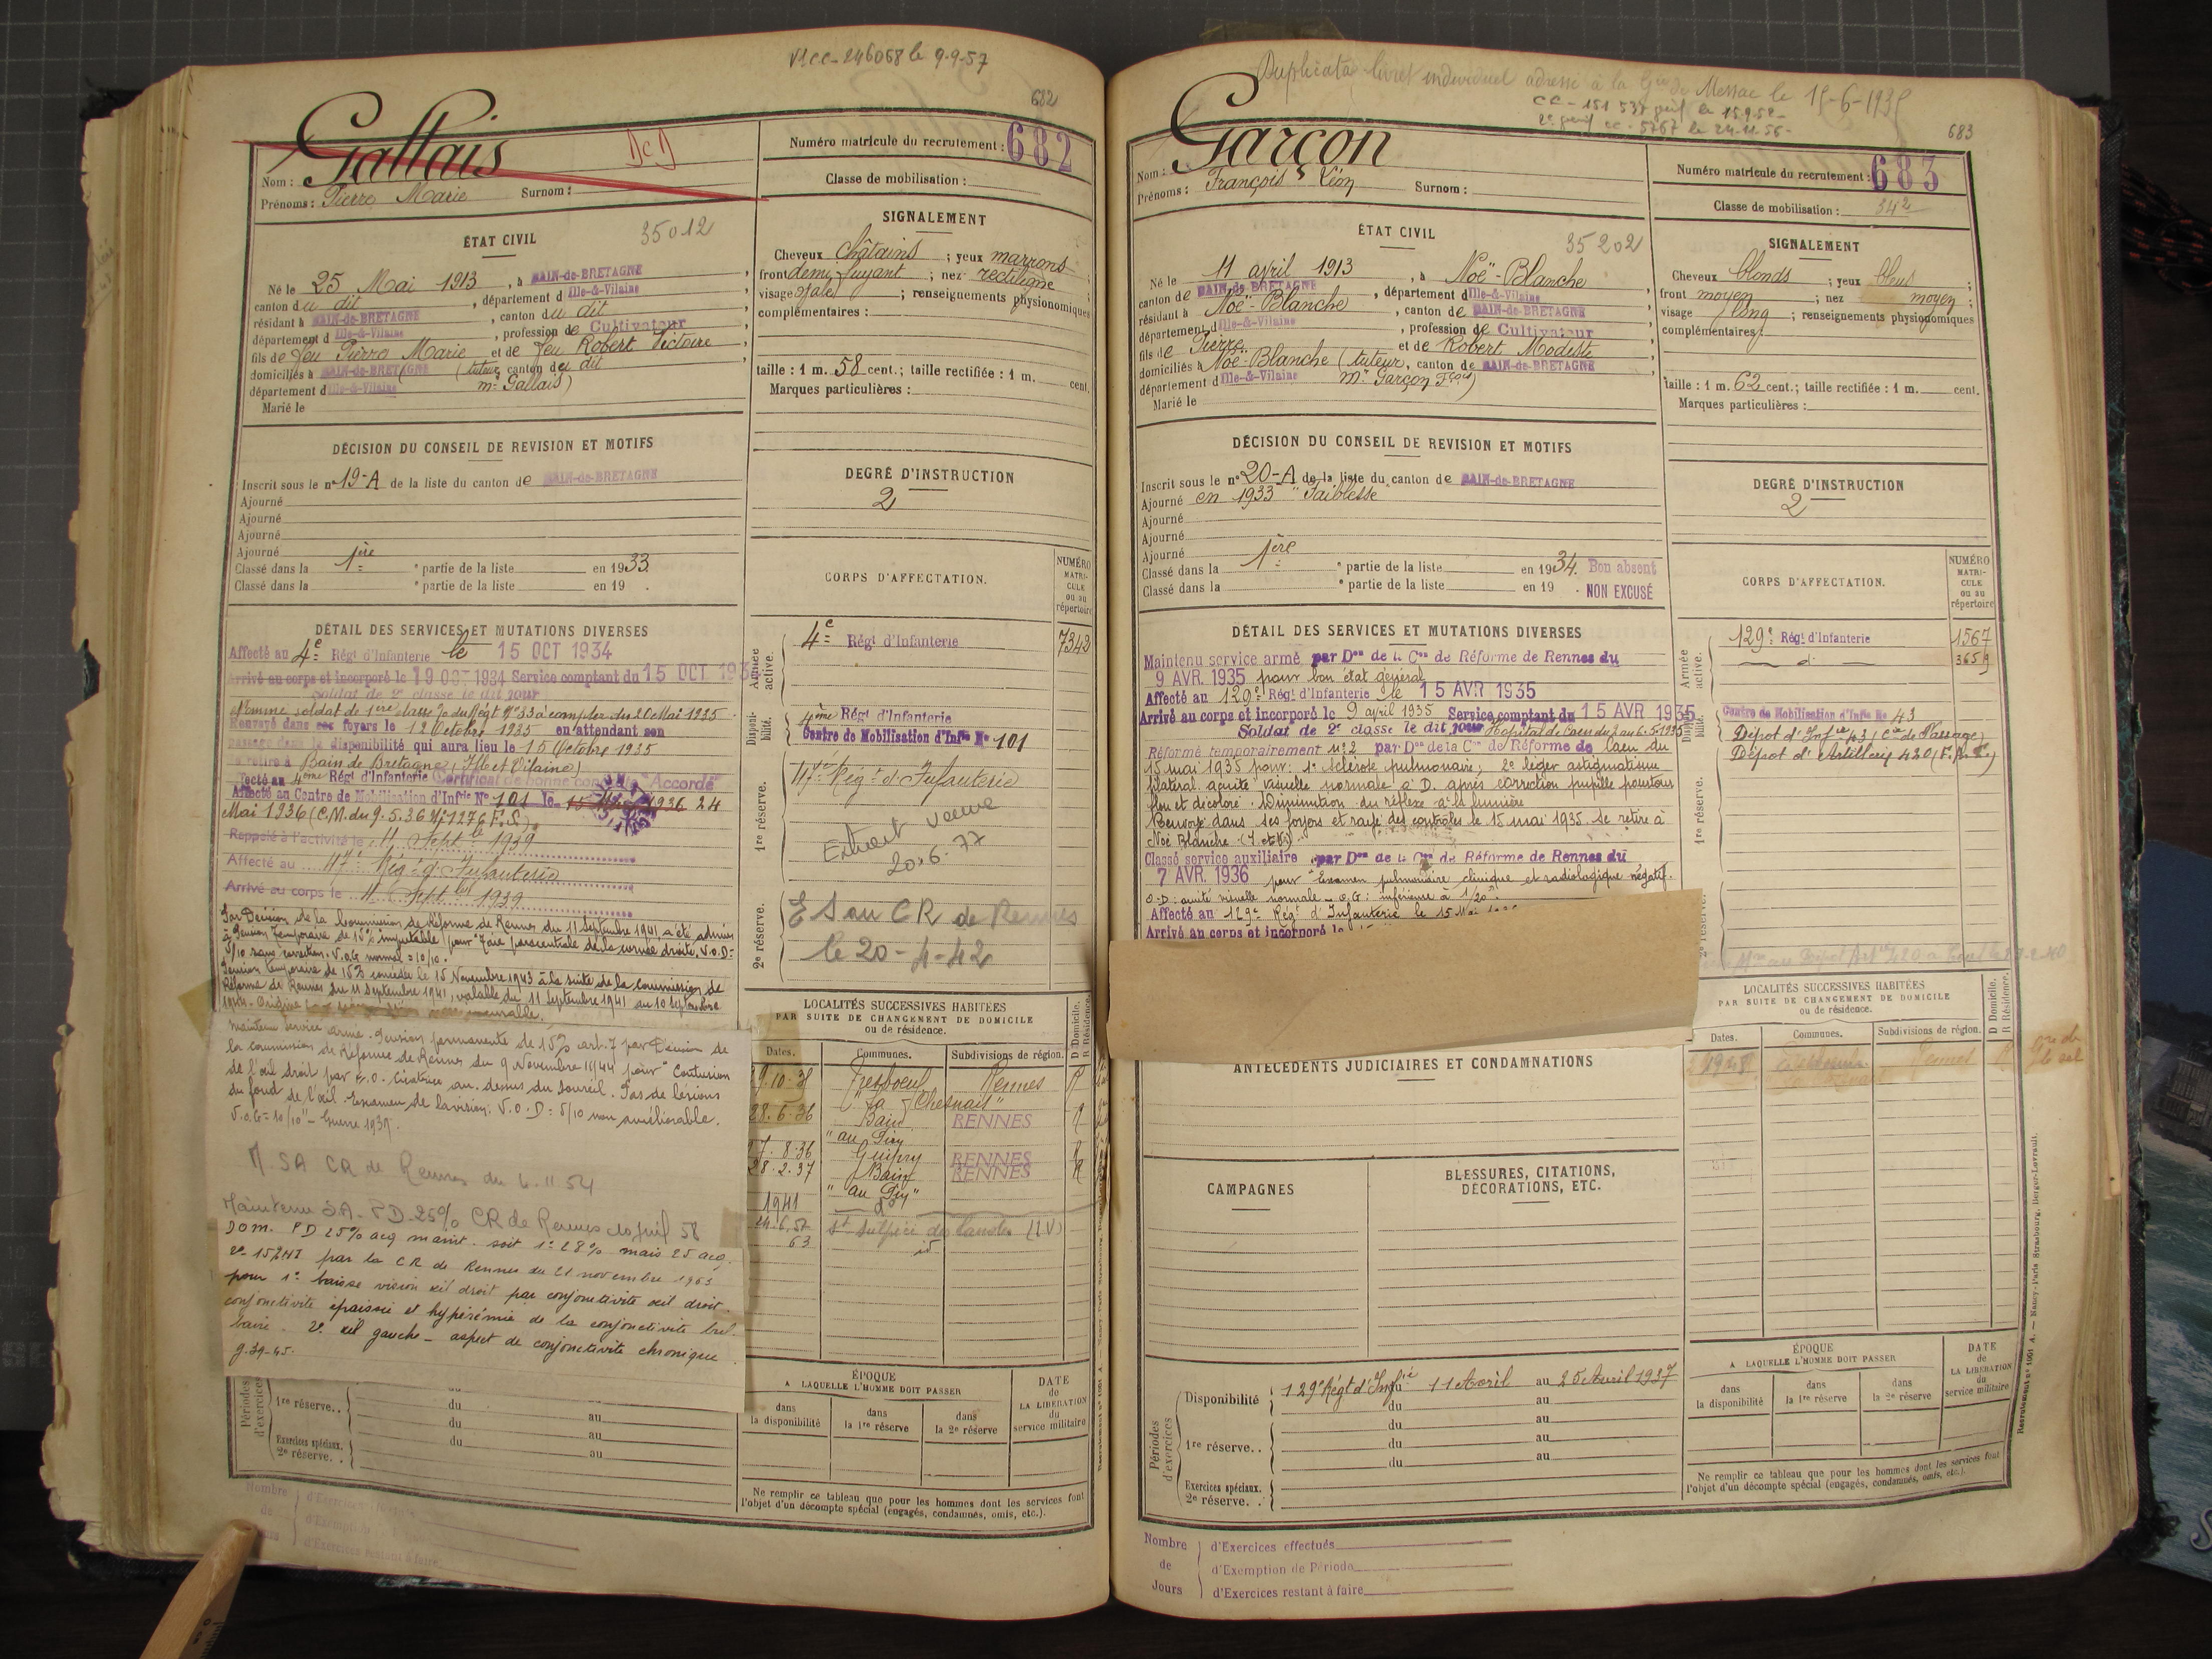 VSCC-246068 le 9-9-57
682
Gallais
DCD
Nom :
Prénoms : Pierre Marie Surnom :
Numéro matricule du recrutement : 682
Classe de mobilisation :
ÉTAT CIVIL
35012
Né le 25 Mai 1913, à BAIN-de-BRETAGNE,
canton du dit, département d Ille-&-Vilaine
résidant à BAIN-de-BRETAGNE, canton du dit
département d Ille-&-Vilaine, profession de Cultivateur
fils de feu Pierre Marie et de feu Robert Victoire,
domiciliés à BAIN-de-BRETAGNE (tuteur, canton du dit
département d Ille-&-Vilaine Mr Gallais)
Marié le
SIGNALEMENT
Cheveux châtains ; yeux marrons
front demi fuyant ; nez rectiligne ;
visage ovale ; renseignements physionomiques
complémentaires :
taille : 1 m. 58 cent. ; taille rectifiée : 1 m. cent.
Marques particulières :
DÉCISION DU CONSEIL DE REVISION ET MOTIFS
Inscrit sous le n° 19-A de la liste du canton de BAIN-de-BRETAGNE
Ajourné
Ajourné
Ajourné
Ajourné
Classé dans la 1ère partie de la liste en 1933
Classé dans la partie de la liste en 19 .
DEGRÉ D'INSTRUCTION
2
DÉTAIL DES SERVICES ET MUTATIONS DIVERSES
Affecté au 4e Régt d'Infanterie le 15 OCT 1934
Arrivé au corps et incorporé le 19 OCT 1934 Service comptant du 15 OCT 1934
Soldat de 2e classe le dit jour
Nommé soldat de 1ère classe à compter du 20 Mai 1935
Renvoyé dans ses foyers le 12 Octobre 1935 en attendant son
passage dans la disponibilité qui aura lieu le 15 Octobre 1935
Se retire à Bain de Bretagne (Ille et Vilaine)
Affecté au 4ème Régt d'Infanterie Certificat de bonne conduite "Accordé"
Affecté au Centre de Mobilisation d'Infrie N° 101 24
Mai 1936 (C.M. du 9.5.36
Rappelé à l'activité le 11 Septbre 1939
Affecté au 117e Régt d'Infanterie
Arrivé au corps le 11 Septbre 1939
Par Décision de la Commission de Réforme de Rennes du 11 Septembre 1941, a été admis
à Pension Temporaire de 15% imputable pour "Taie paracentrale de la cornée droite. V.O.D=
5/10 sans correction. V.O.G normal = 10/10.
Pension temporaire de 15% concédée le 15 Novembre 1943 à la suite de la commission de
Réforme de Rennes du 11 Septembre 1941, valable du 11 Septembre 1941 au 10 Septembre
Maintenu service armé. Pension permanente de 15% art. 7 par Décision de
la commission de Réforme de Rennes du 9 Novembre 1944 pour "Contusion
de l'œil droit par E.O. Cicatrice au-dessus du sourcil. Pas de lésions
du fond de l'œil. Examen de la vision: V.O.D= 5/10 non améliorable.
V.O.G= 10/10" - Guerre 1939.
M. SA CR de Rennes du 4.11 54
Maintenu S.A. PD. 25% CR de Rennes 58
Dom. PD 25% acq maint. soit 1° 28% mais 25 acq.
par la CR de Rennes du 21 novembre 1963
pour 1° baisse vision œil droit par conjonctivite œil droit.
conjonctivite épaissie et hyperémie de la conjonctivite bul-
baire. 2° œil gauche - aspect de conjonctivite chronique.
g. 39-45.
CORPS D'AFFECTATION.
NUMÉRO MATRICULE ou au répertoire
Armée active.
4e Régt d'Infanterie 7342
Disponibilité.
4ème Régt d'Infanterie
Centre de Mobilisation d'Infrie N° 101
1re réserve.
117e Régt d'Infanterie
Extrait
20.6.77
2e réserve.
CR de Rennes
le 20-4-42
LOCALITÉS SUCCESSIVES HABITÉES
PAR SUITE DE CHANGEMENT DE DOMICILE
ou de résidence.
Dates. Communes. Subdivisions de région. D Domicile. R Résidence.
Tresboeuf Rennes R
"La Chesnais"
28.6.36 Bain RENNES R
8.36 Guipry RENNES R
28.2.37 Bain RENNES R
1941
St Sulpice des Landes (I.V)
63
ÉPOQUE
A LAQUELLE L'HOMME DOIT PASSER
dans la disponibilité
dans la 1re réserve
dans la 2e réserve
DATE de LA LIBÉRATION du service militaire
Périodes d'exercices
1re réserve. . du au
du au
Exercices spéciaux. du au
2e réserve. . au
Ne remplir ce tableau que pour les hommes dont les services font
l'objet d'un décompte spécial (engagés, condamnés, omis, etc.).
Nombre de Jours
d'Exercices restant à faire
Duplicata livret individuel adressé à la Gie de Messac le 15-6-1935
CC-151 537 le 15.9.52-
cc-5767 le 24-11.56-
683
Garçon
Nom :
Prénoms : François Léon Surnom :
Numéro matricule du recrutement : 683
Classe de mobilisation : 34/2
ÉTAT CIVIL
35202
Né le 11 avril 1913, à Noë-Blanche,
canton de BAIN-de-BRETAGNE, département d Ille-&-Vilaine
résidant à Noë-Blanche, canton de BAIN-de-BRETAGNE
département d Ille-&-Vilaine, profession de Cultivateur
fils de Pierre et de Robert Modeste
domiciliés à Noë-Blanche (tuteur, canton de BAIN-de-BRETAGNE
département d Ille-&-Vilaine Mr Garçon Fçois)
Marié le
SIGNALEMENT
Cheveux blonds ; yeux bleus
front moyen ; nez moyen ;
visage long ; renseignements physionomiques
complémentaires :
Taille : 1 m. 62 cent. ; taille rectifiée : 1 m. cent.
Marques particulières :
DÉCISION DU CONSEIL DE REVISION ET MOTIFS
Inscrit sous le n° 20-A de la liste du canton de BAIN-de-BRETAGNE
Ajourné en 1933 "Faiblesse"
Ajourné
Ajourné
Ajourné
Classé dans la 1ère partie de la liste en 1934. Bon absent
Classé dans la partie de la liste en 19 . NON EXCUSÉ
DEGRÉ D'INSTRUCTION
2
DÉTAIL DES SERVICES ET MUTATIONS DIVERSES
Maintenu service armé par Don de la Con de Réforme de Rennes du
9 AVR. 1935 pour bon état général
Affecté au 129e Régt d'Infanterie le 15 AVR 1935
Arrivé au corps et incorporé le 9 avril 1935 Service comptant du 15 AVR 1935
Soldat de 2e classe le dit jour Hopital de Caen du
Réformé temporairement n°2 par Don de la Con de Réforme de Caen du
15 mai 1935 pour: 1° Sclérose pulmonaire; 2° léger astigmatisme
bilatéral acuité visuelle normale à D. après correction pupille pourtour
flou et décoloré. Diminution du réflexe à la lumière
Renvoyé dans ses foyers et rayé des contrôles le 15 mai 1935. Se retire à
Noë Blanche (I et V)
Classé service auxiliaire par Don de la Con de Réforme de Rennes du
7 AVR. 1936 pour "Examen pulmonaire clinique et radiologique négatif.
O.D: acuité visuelle normale - O.G: inférieure à 1/20"
Affecté au 129e Régt d'Infanterie le 15 Mai
Arrivé au corps et incorporé le
CORPS D'AFFECTATION.
NUMÉRO MATRICULE ou au répertoire
Armée active.
129e Régt d'Infanterie 1567
d° 3659
Centre de Mobilisation d'Infie N° 43
Dépot d'Infie 43 (Cie de Passage)
Dépot d'Artillerie 420
1re réserve.
2e réserve.
LOCALITÉS SUCCESSIVES HABITÉES
PAR SUITE DE CHANGEMENT DE DOMICILE
ou de résidence.
Dates. Communes. Subdivisions de région. D Domicile. R Résidence.
Rennes R
ANTÉCÉDENTS JUDICIAIRES ET CONDAMNATIONS
CAMPAGNES
BLESSURES, CITATIONS, DÉCORATIONS, ETC.
Périodes d'exercices
Disponibilité 129e Régt d'Infie du 11 Avril au 25 Avril 1937
du au
1re réserve. . du au
du au
Exercices spéciaux.
2e réserve. .
ÉPOQUE
A LAQUELLE L'HOMME DOIT PASSER
dans la disponibilité
dans la 1re réserve
dans la 2e réserve
DATE de LA LIBÉRATION du service militaire
Ne remplir ce tableau que pour les hommes dont les services font
l'objet d'un décompte spécial (engagés, condamnés, omis, etc.).
Nombre de Jours
d'Exercices effectués
d'Exemption de Période
d'Exercices restant à faire